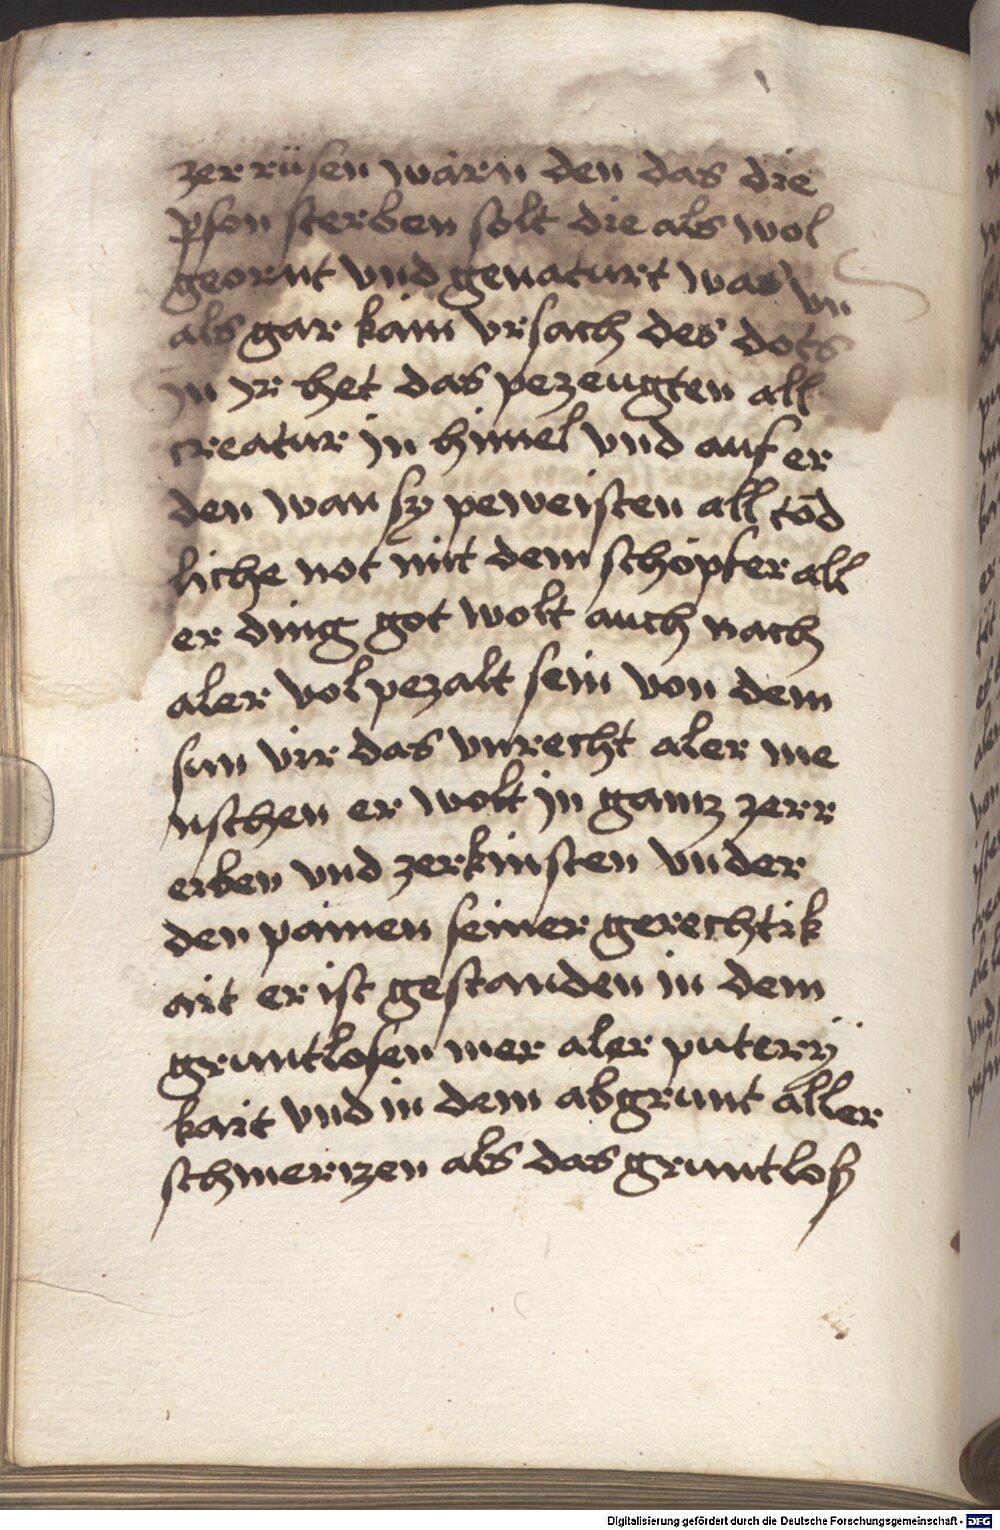 zerrüsen warn den das die
ꝑson sterben solt die als wol
geornt vnd genaturt was vn
als gar kain vrsach des dots
in yr het das pezeugten all
creatur in himel vnd auf er
den wan sy peweisten all töd
liche not mit dem schöpfer all
er ding got wolt auch nach
aler vol pezalt sein von dem
sun vir das vnrecht aler me
nschen er wolt in gantz zerr
erben vnd zerkinsten vnder
den painen seiner gerechtik
ait er ist gestanden in dem
gruntlosen mer aler putery
kait vnd in dem abgrunt aller
schmerizen als das gruntloß
Digitalisierung gefördert durch die Deutsche Forschungsgemeinschaft - DFG